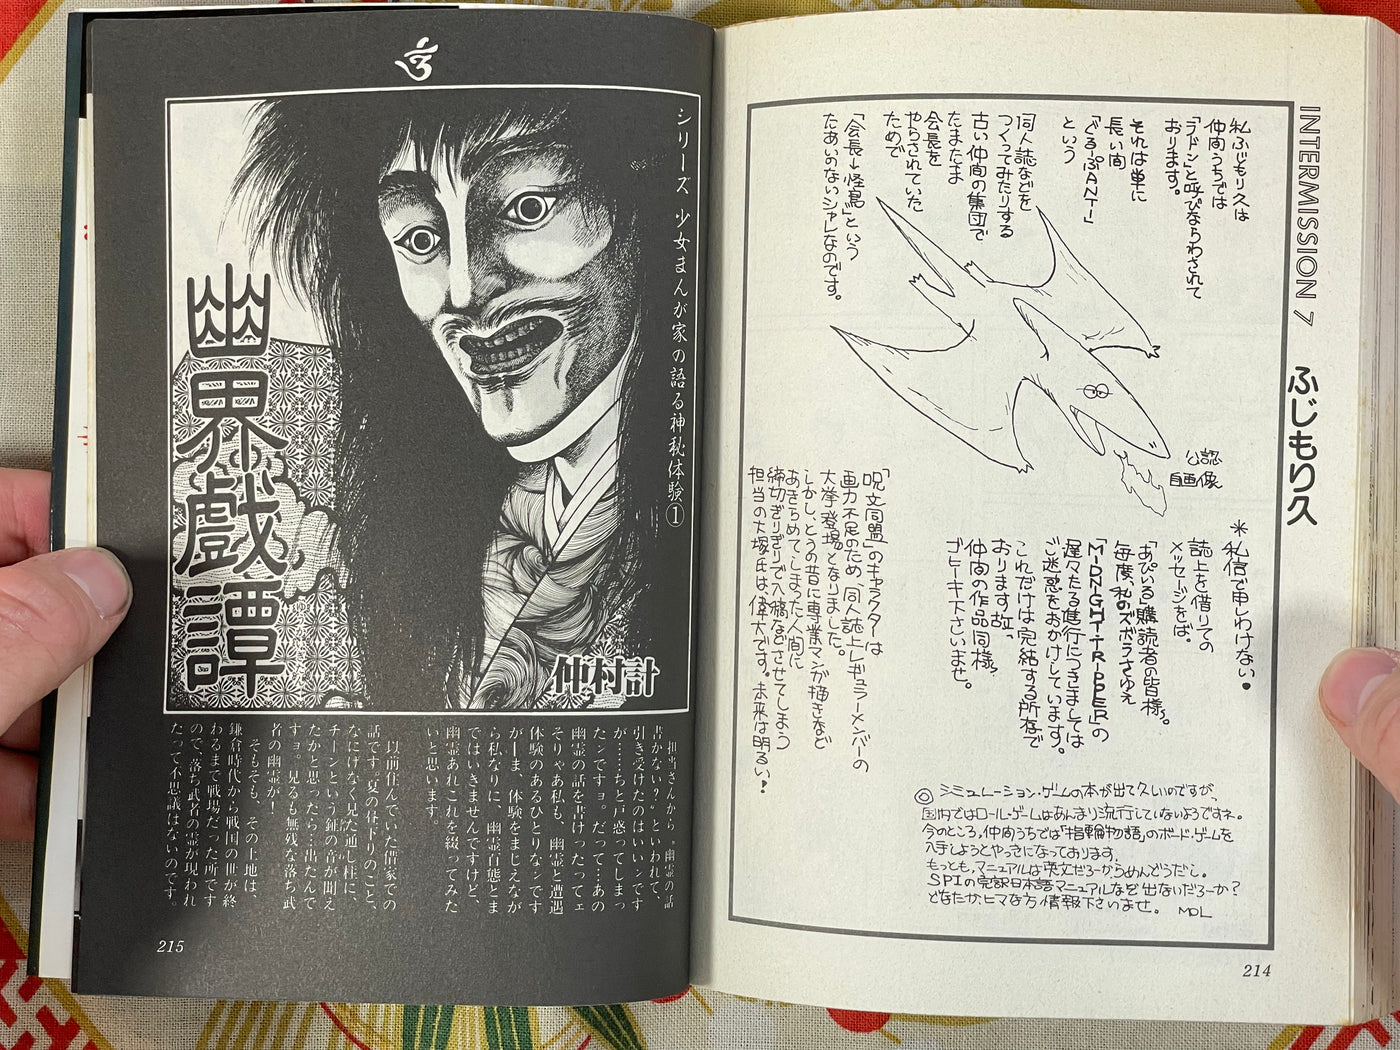 INTERMISSION 7 ふじもり久
私ふじもり久は
仲間うちでは
「ラドン」と呼びならわされて
おります。
それは単に
長い間
「ぐるーぷANT」
という
同人誌などを
つくってみたりする
古い仲間の集団で
たまたま
会長を
やらされていた
ためで
「会長→怪鳥」という
たあいのないシャレなのです。
公認
自画像
*私信で申しわけない。
誌上を借りての
メッセージをば。
「あぴいる」購読者の皆様。
毎度、私のズボラさゆえ
「MIDNIGHT-TRIPPER」の
遅々たる進行につきましては
ご迷惑をおかけしています。
これだけは完結する所存で
おります故、
仲間の作品同様、
ゴヒーキ下さいませ。
「呪文同盟」のキャラクターは
画力不足のため、同人誌上レギュラーメンバーの
大挙登場となりました。
しかし、とうの昔に専業マンガ描きなど
あきらめてしまった人間に
締切ぎりぎりで入稿などさせてしまう
担当の大塚氏は、偉大です。未来は明るい!
◎シミュレーション・ゲームの本が出て久いのですが、
国内ではロール・ゲームはあんまり流行していないようですネ。
今のところ、仲間うちでは「指輪物語」のボード・ゲームを
入手しようとやっきになっております。
もっとも、マニュアルは英文だろーからめんどうだし。
SPIの完訳日本語マニュアルなぞ出ないだろーか?
どなたか、ヒマな方情報下さいませ。 MDL
214
シリーズ 少女まんが家の語る神秘体験①
幽界戯譚
仲村計
担当さんから〝幽霊の話
書かない?〟といわれて、
引き受けたのはいいンです
が……ちと戸惑ってしまっ
たンですョ。だって…あの
幽霊の話を書けったってェ
そりゃあ私も、幽霊と遭遇
体験のあるひとりなンです
がーま、体験をまじえなが
ら私なりに、幽霊百態とま
ではいきませんですけど、
幽霊あれこれを綴ってみた
いと思います。
以前住んでいた借家での
話です。夏の昼下りのこと、
なにげなく見た通し柱に、
チーンという鉦の音が聞え
たかと思ったら…出たんで
すョ。見るも無残な落ち武
者の幽霊が!
そもそも、その土地は
鎌倉時代から戦国の世が終
わるまで戦場だった所です
ので、落ち武者の霊が現われ
たって不思議はないのです。
215